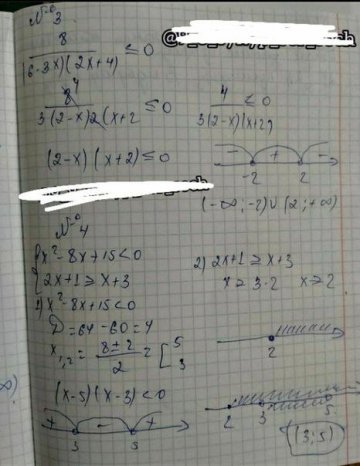 №3
8/((6-3x)(2x+4)) ≤ 0
8⁴/(3(2-x)2(x+2) ≤ 0
4/(3(2-x)(x+2)) ≤ 0
(2-x)(x+2) ≤ 0
- + -
-2 2
(-∞; -2) ∪ (2; +∞)
№4
{ x²-8x+15<0
2x+1 ≥ x+3
1) x²-8x+15<0
D=64-60=4
x₁,₂ = (8±2)/2 = [5 3
(x-5)(x-3)<0
+ - +
3 5
2) 2x+1 ≥ x+3
x ≥ 3-2 x ≥ 2
2
2 3 5
(3; 5)